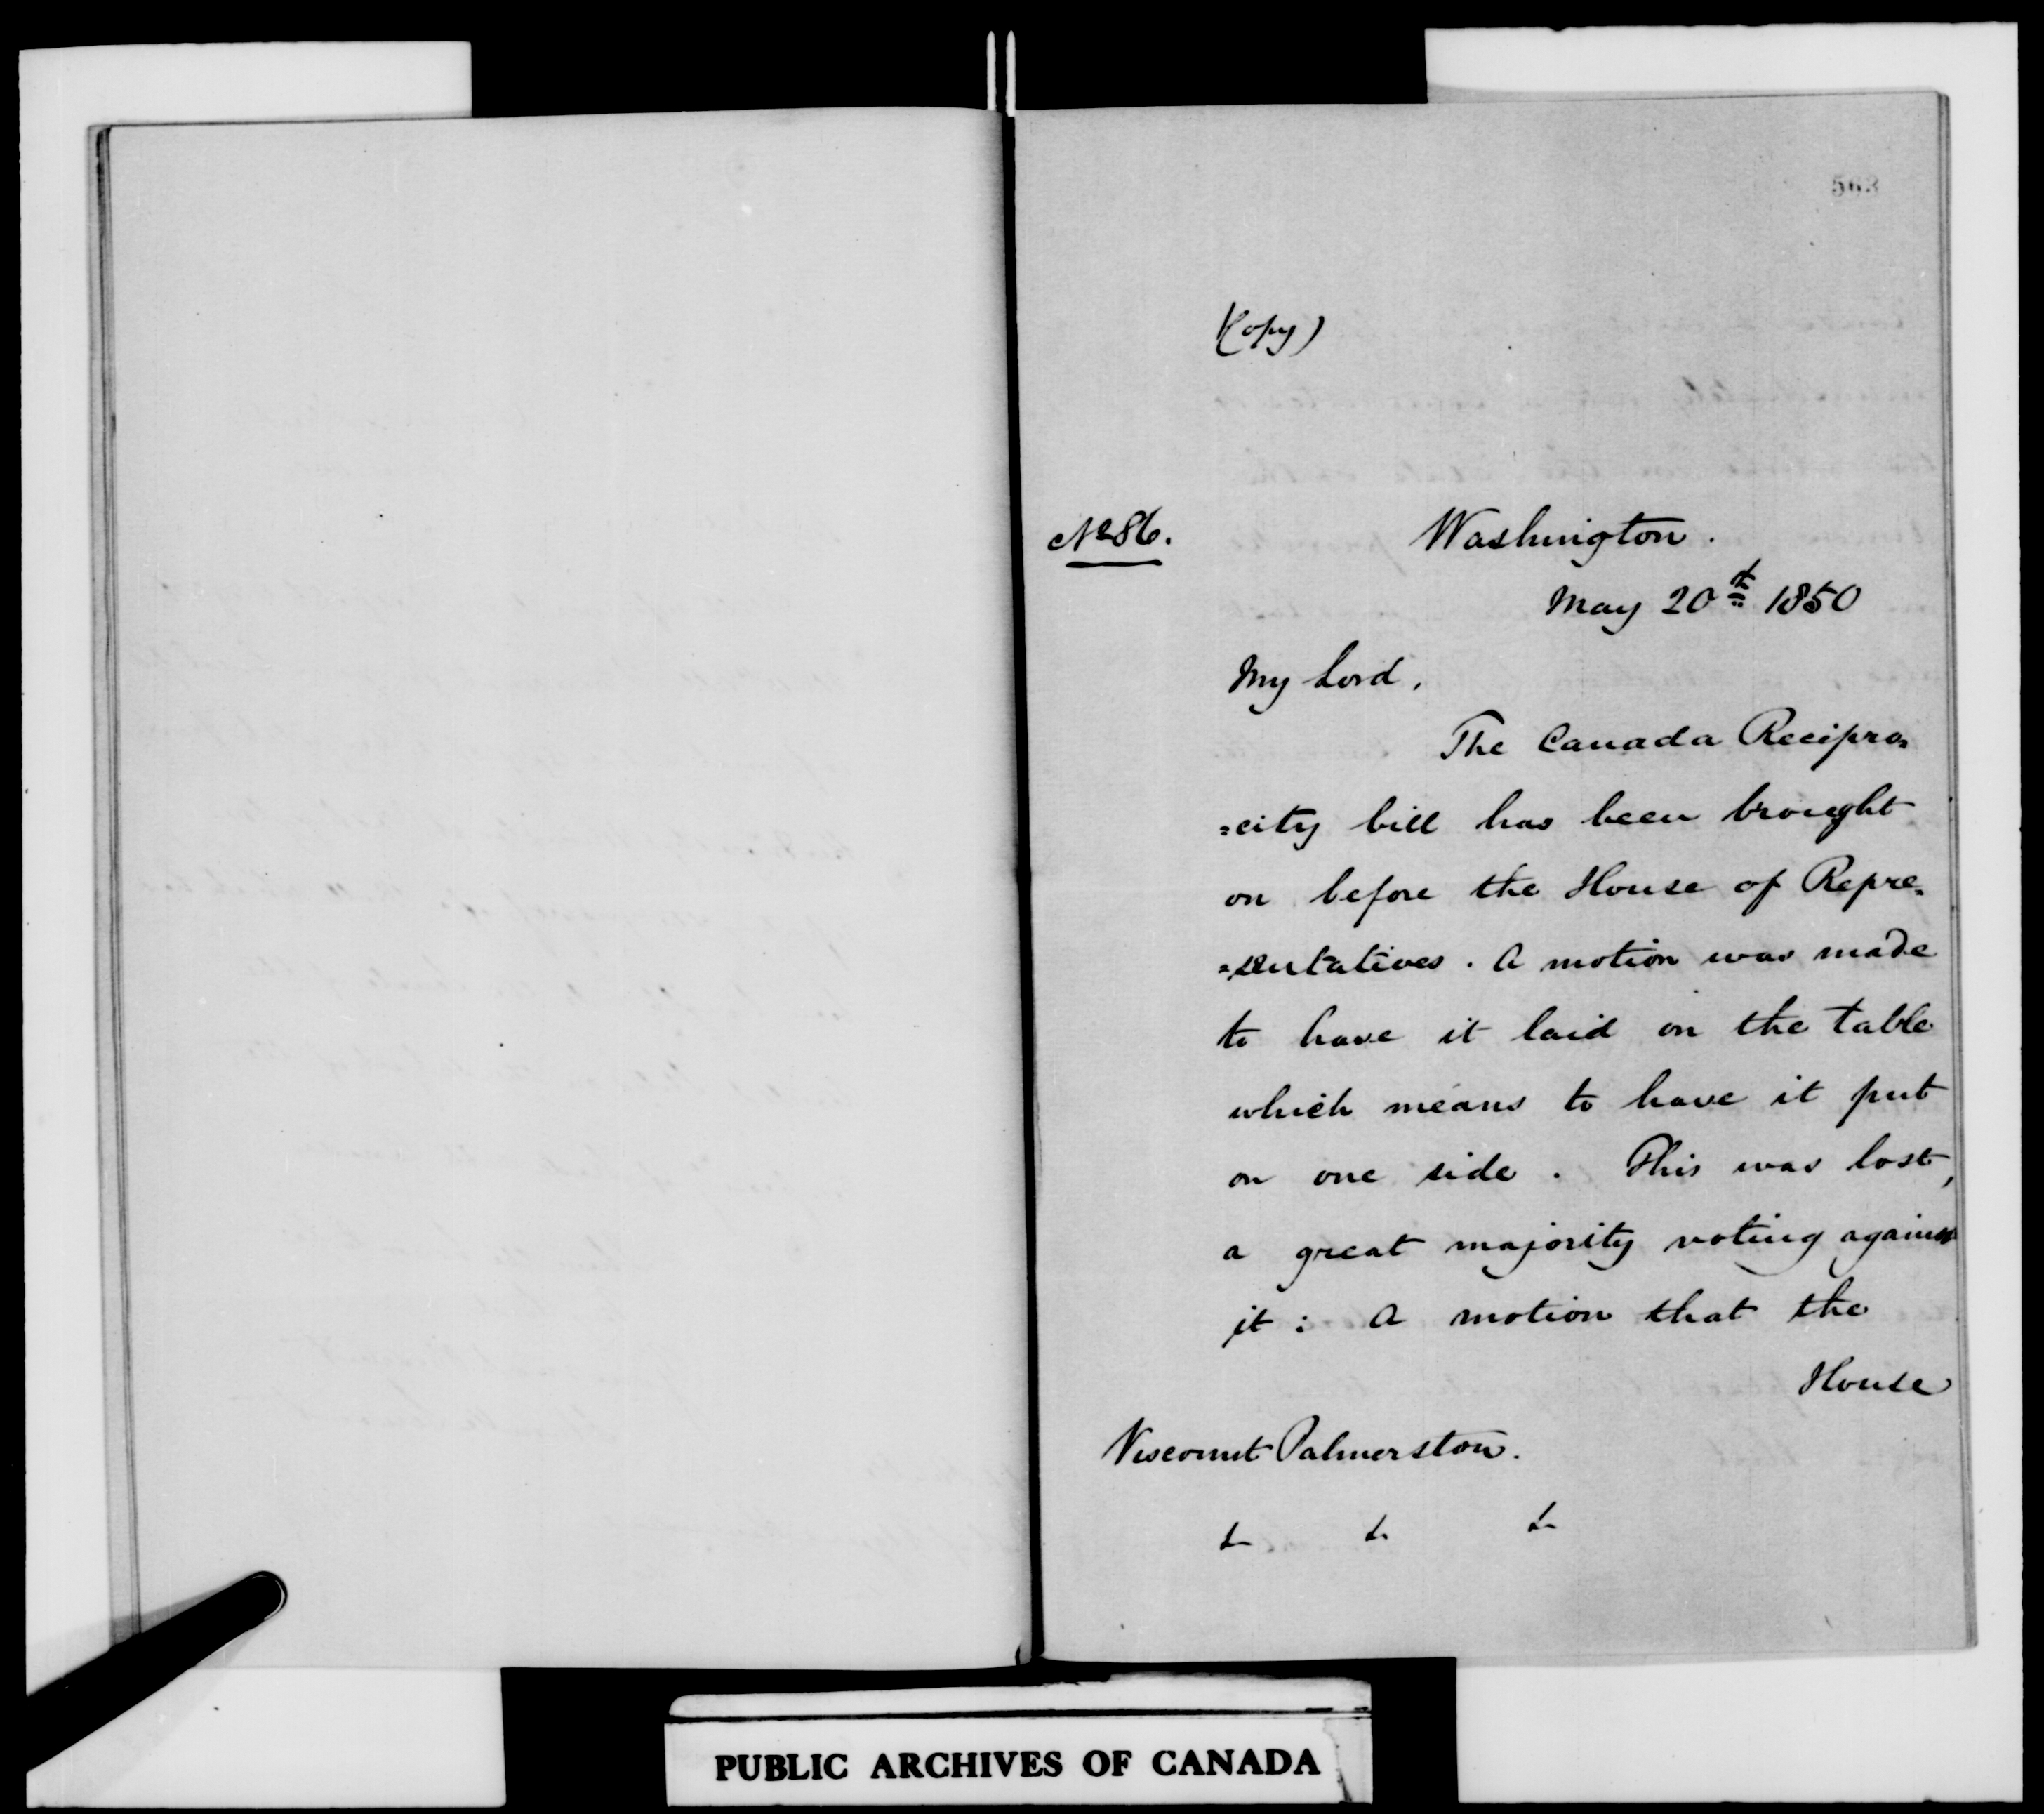 563
(Copy)
No 86.
Washington.
May 20th 1850
My Lord,
The Canada Recipro=
=city bill has been brought
on before the House of Repre=
=sentatives. A motion was made
to have it laid on the table
which means to have it put
on one side. This was lost,
a great majority voting against
it: A motion that the
House
Viscount Palmerston.
&c &c &c
PUBLIC ARCHIVES OF CANADA